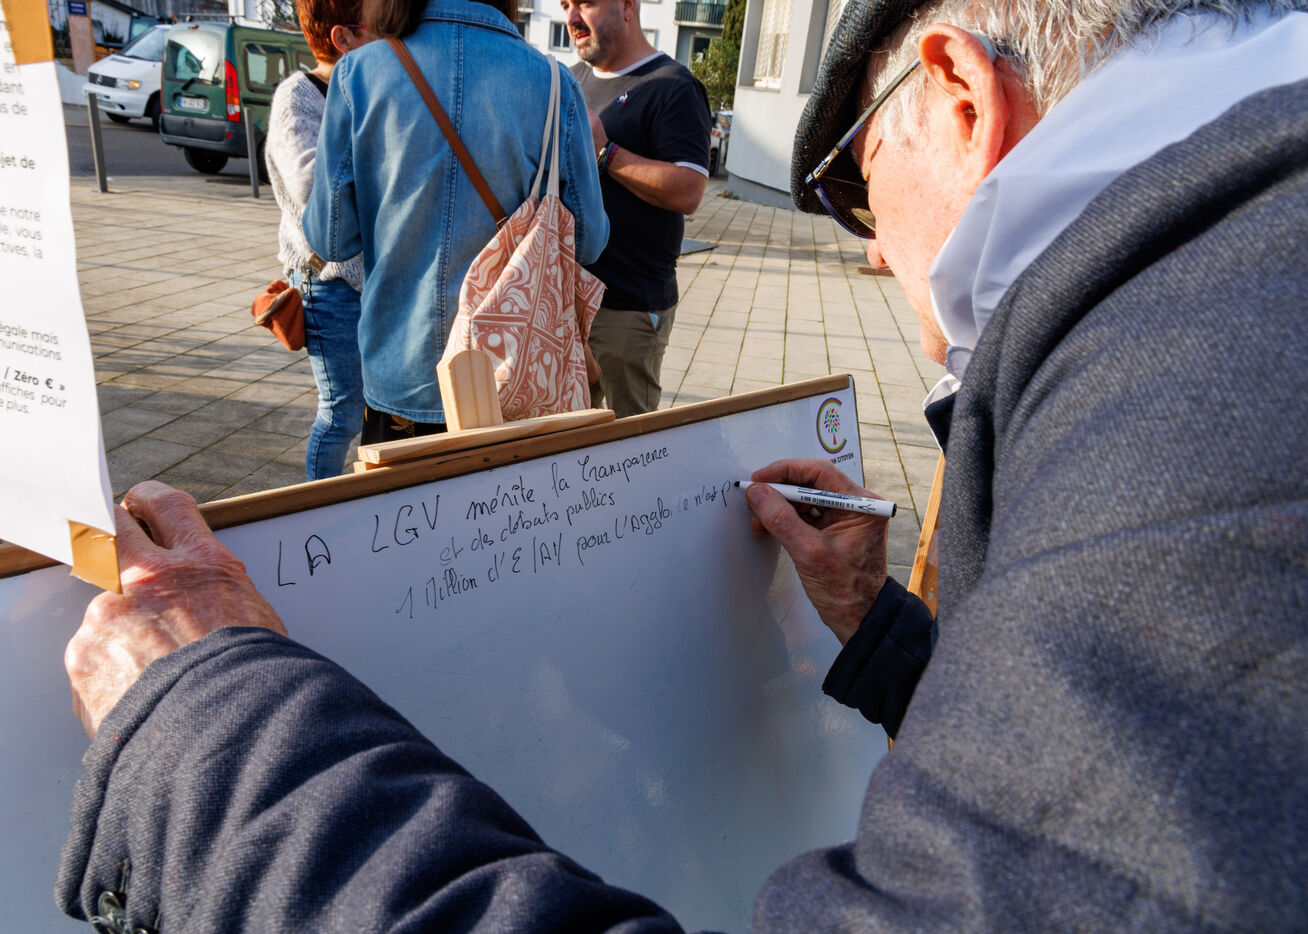 et
jet de
notre
vous
la
égale mais
/ Zéro € »
affiches pour
plus.
CITOYEN
LA LGV mérite la Transparence
et des débats publics
1 Million d'€/AN pour l'Agglo, ce n'est p